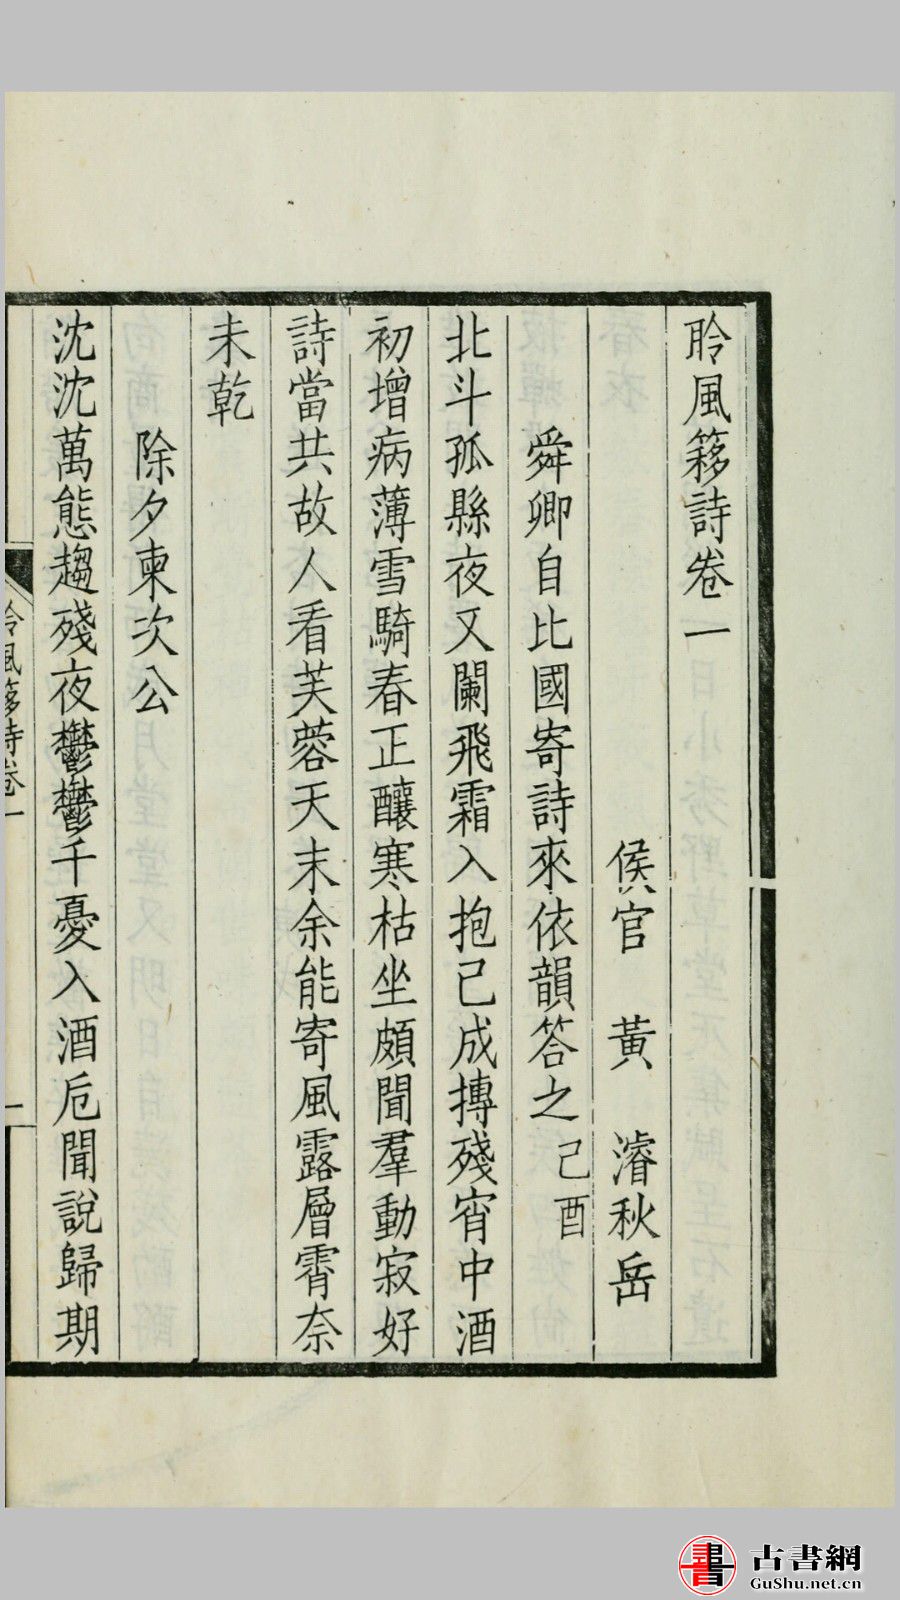 聆風簃詩卷一
侯官 黃 濬秋岳
舜卿自比國寄詩來依韻答之 己酉
北斗孤縣夜又闌飛霜入抱已成摶殘宵中酒
初增病薄雪騎春正釀寒枯坐頗聞羣動寂好
詩當共故人看芙蓉天末余能寄風露層霄奈
未乾
除夕柬次公
沈沈萬態趨殘夜鬱鬱千憂入酒卮聞說歸期
聆風簃詩卷一
一
古書網
GuShu.net.cn